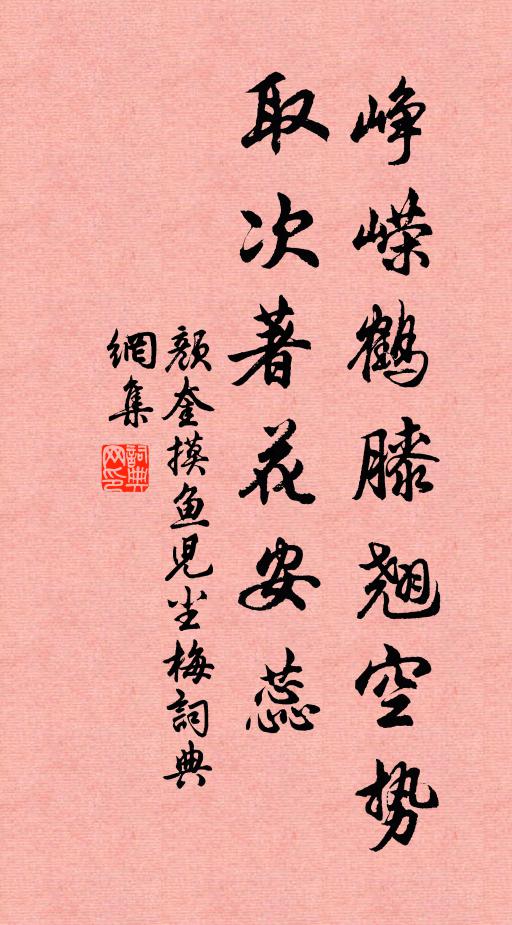 峥嵘鹤膝翘空势
取次著花安蕊
颜奎摸鱼儿坐梅詞典
網集
詞典
网印